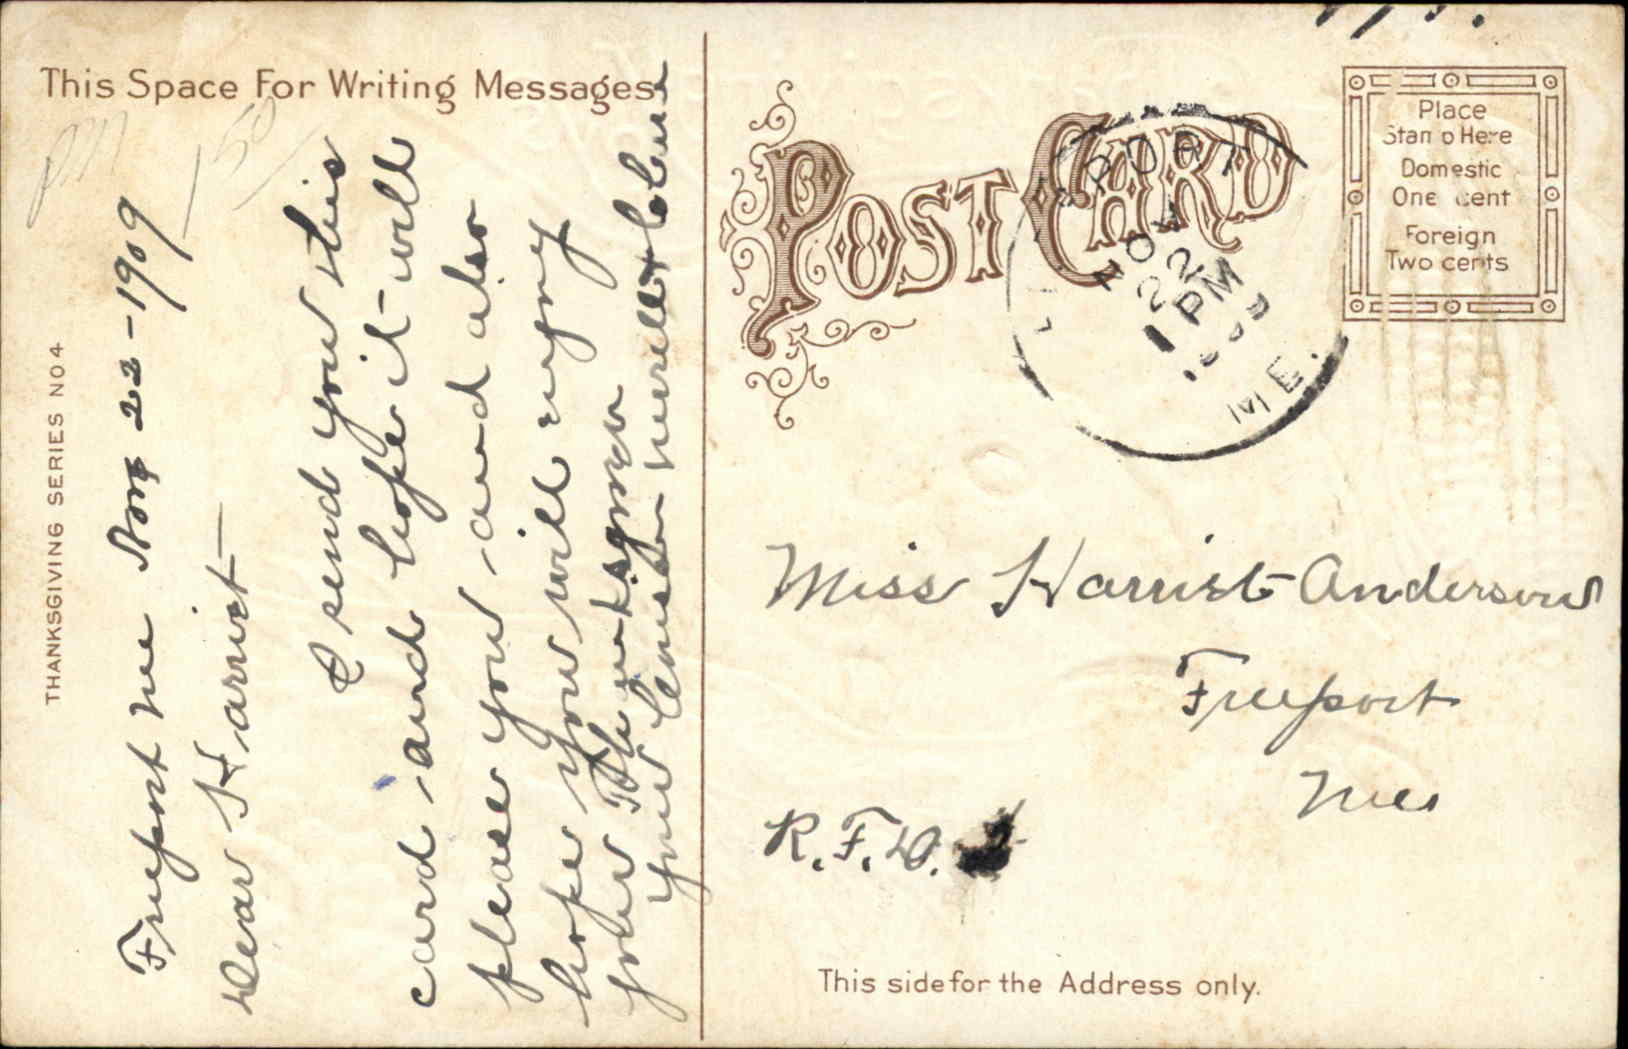 This Space For Writing Messages
THANKSGIVING SERIES NO4
PM
150
Freeport Me Nov 22-1909
Dear Harriet
I send you this
card and hope it will
please you and also
hope you will enjoy
your Thanksgiven
your Cousin
POST CARD
PORT
NOV
22
1 PM
ME.
Place
Stamp Here
Domestic
One cent
Foreign
Two cents
Miss Harriet Anderson
Freeport
Me
R.F.D.
This side for the Address only.